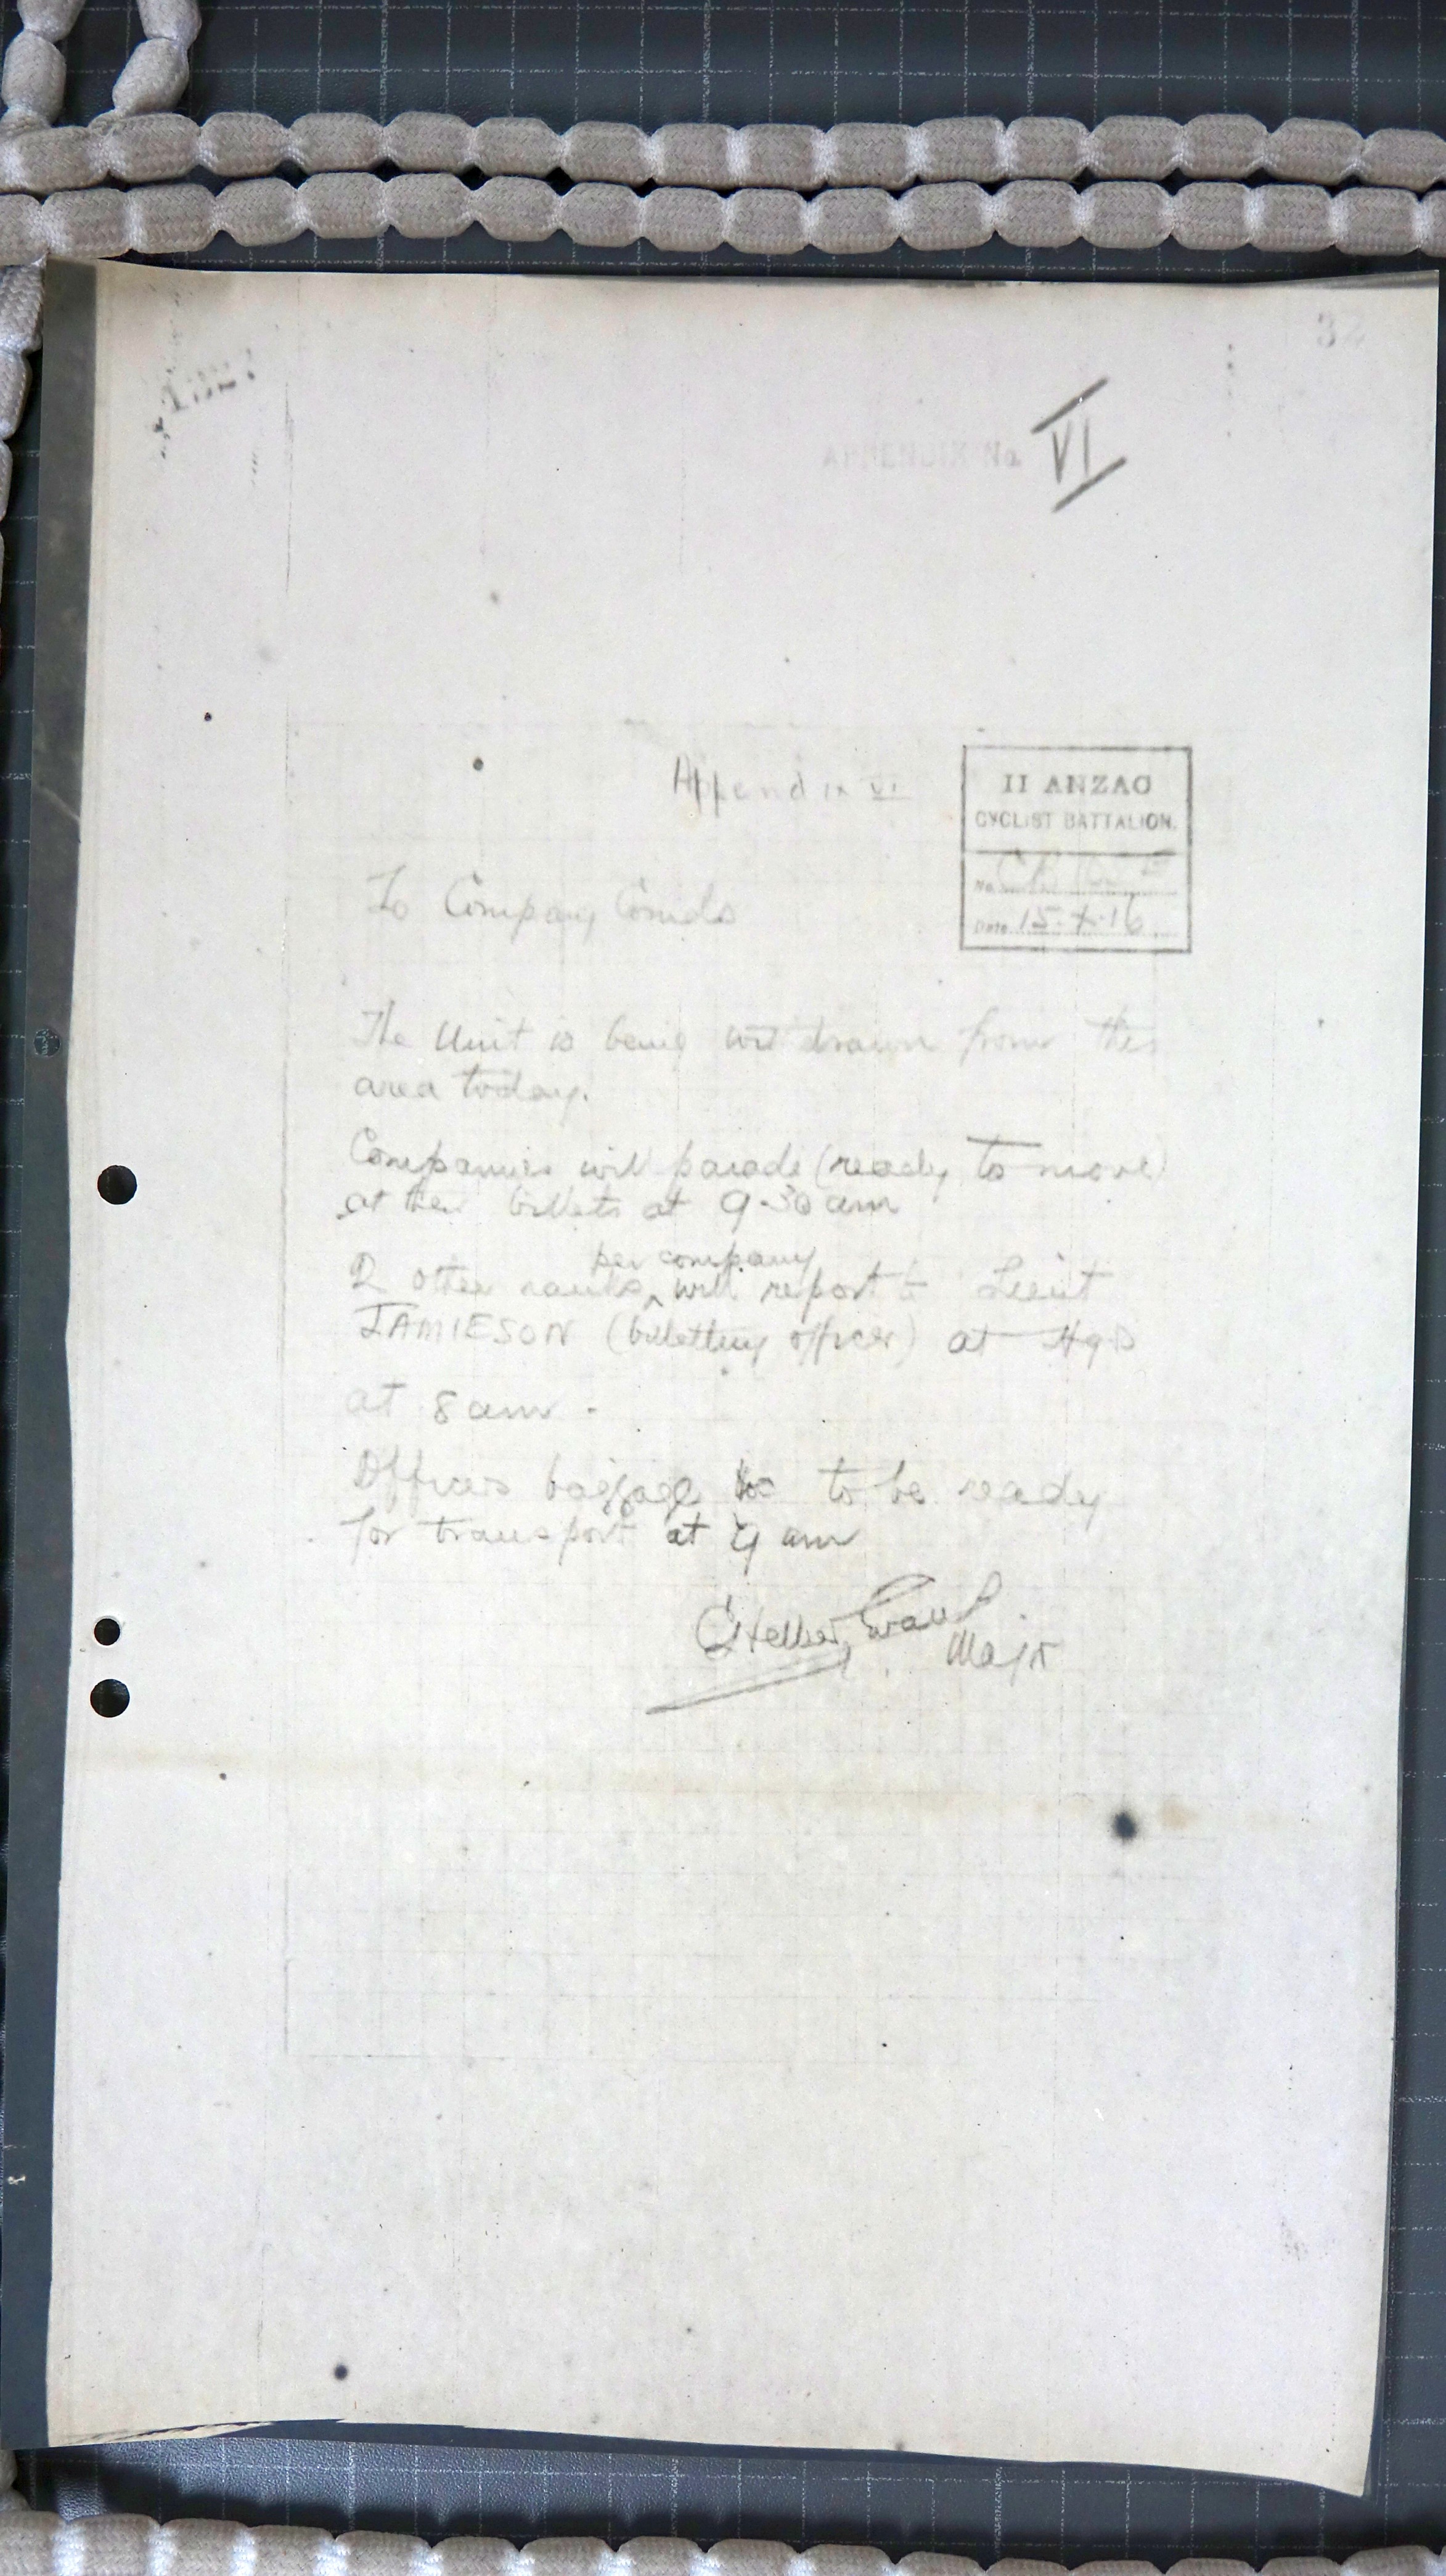 32
APPENDIX No VI
Appendix VI
II ANZAC
CYCLIST BATTALION.
No.
Date 15.X.16
To Company Comds
The Unit is being withdrawn from this
area today.
Companies will parade (ready to move)
at their billets at 9.30 am
per company
2 other ranks ^ will report to Lieut
JAMIESON (billetting officer) at Hqrs
at 8 am.
Officers baggage to be ready
for transport at 9 am
Evans
Major